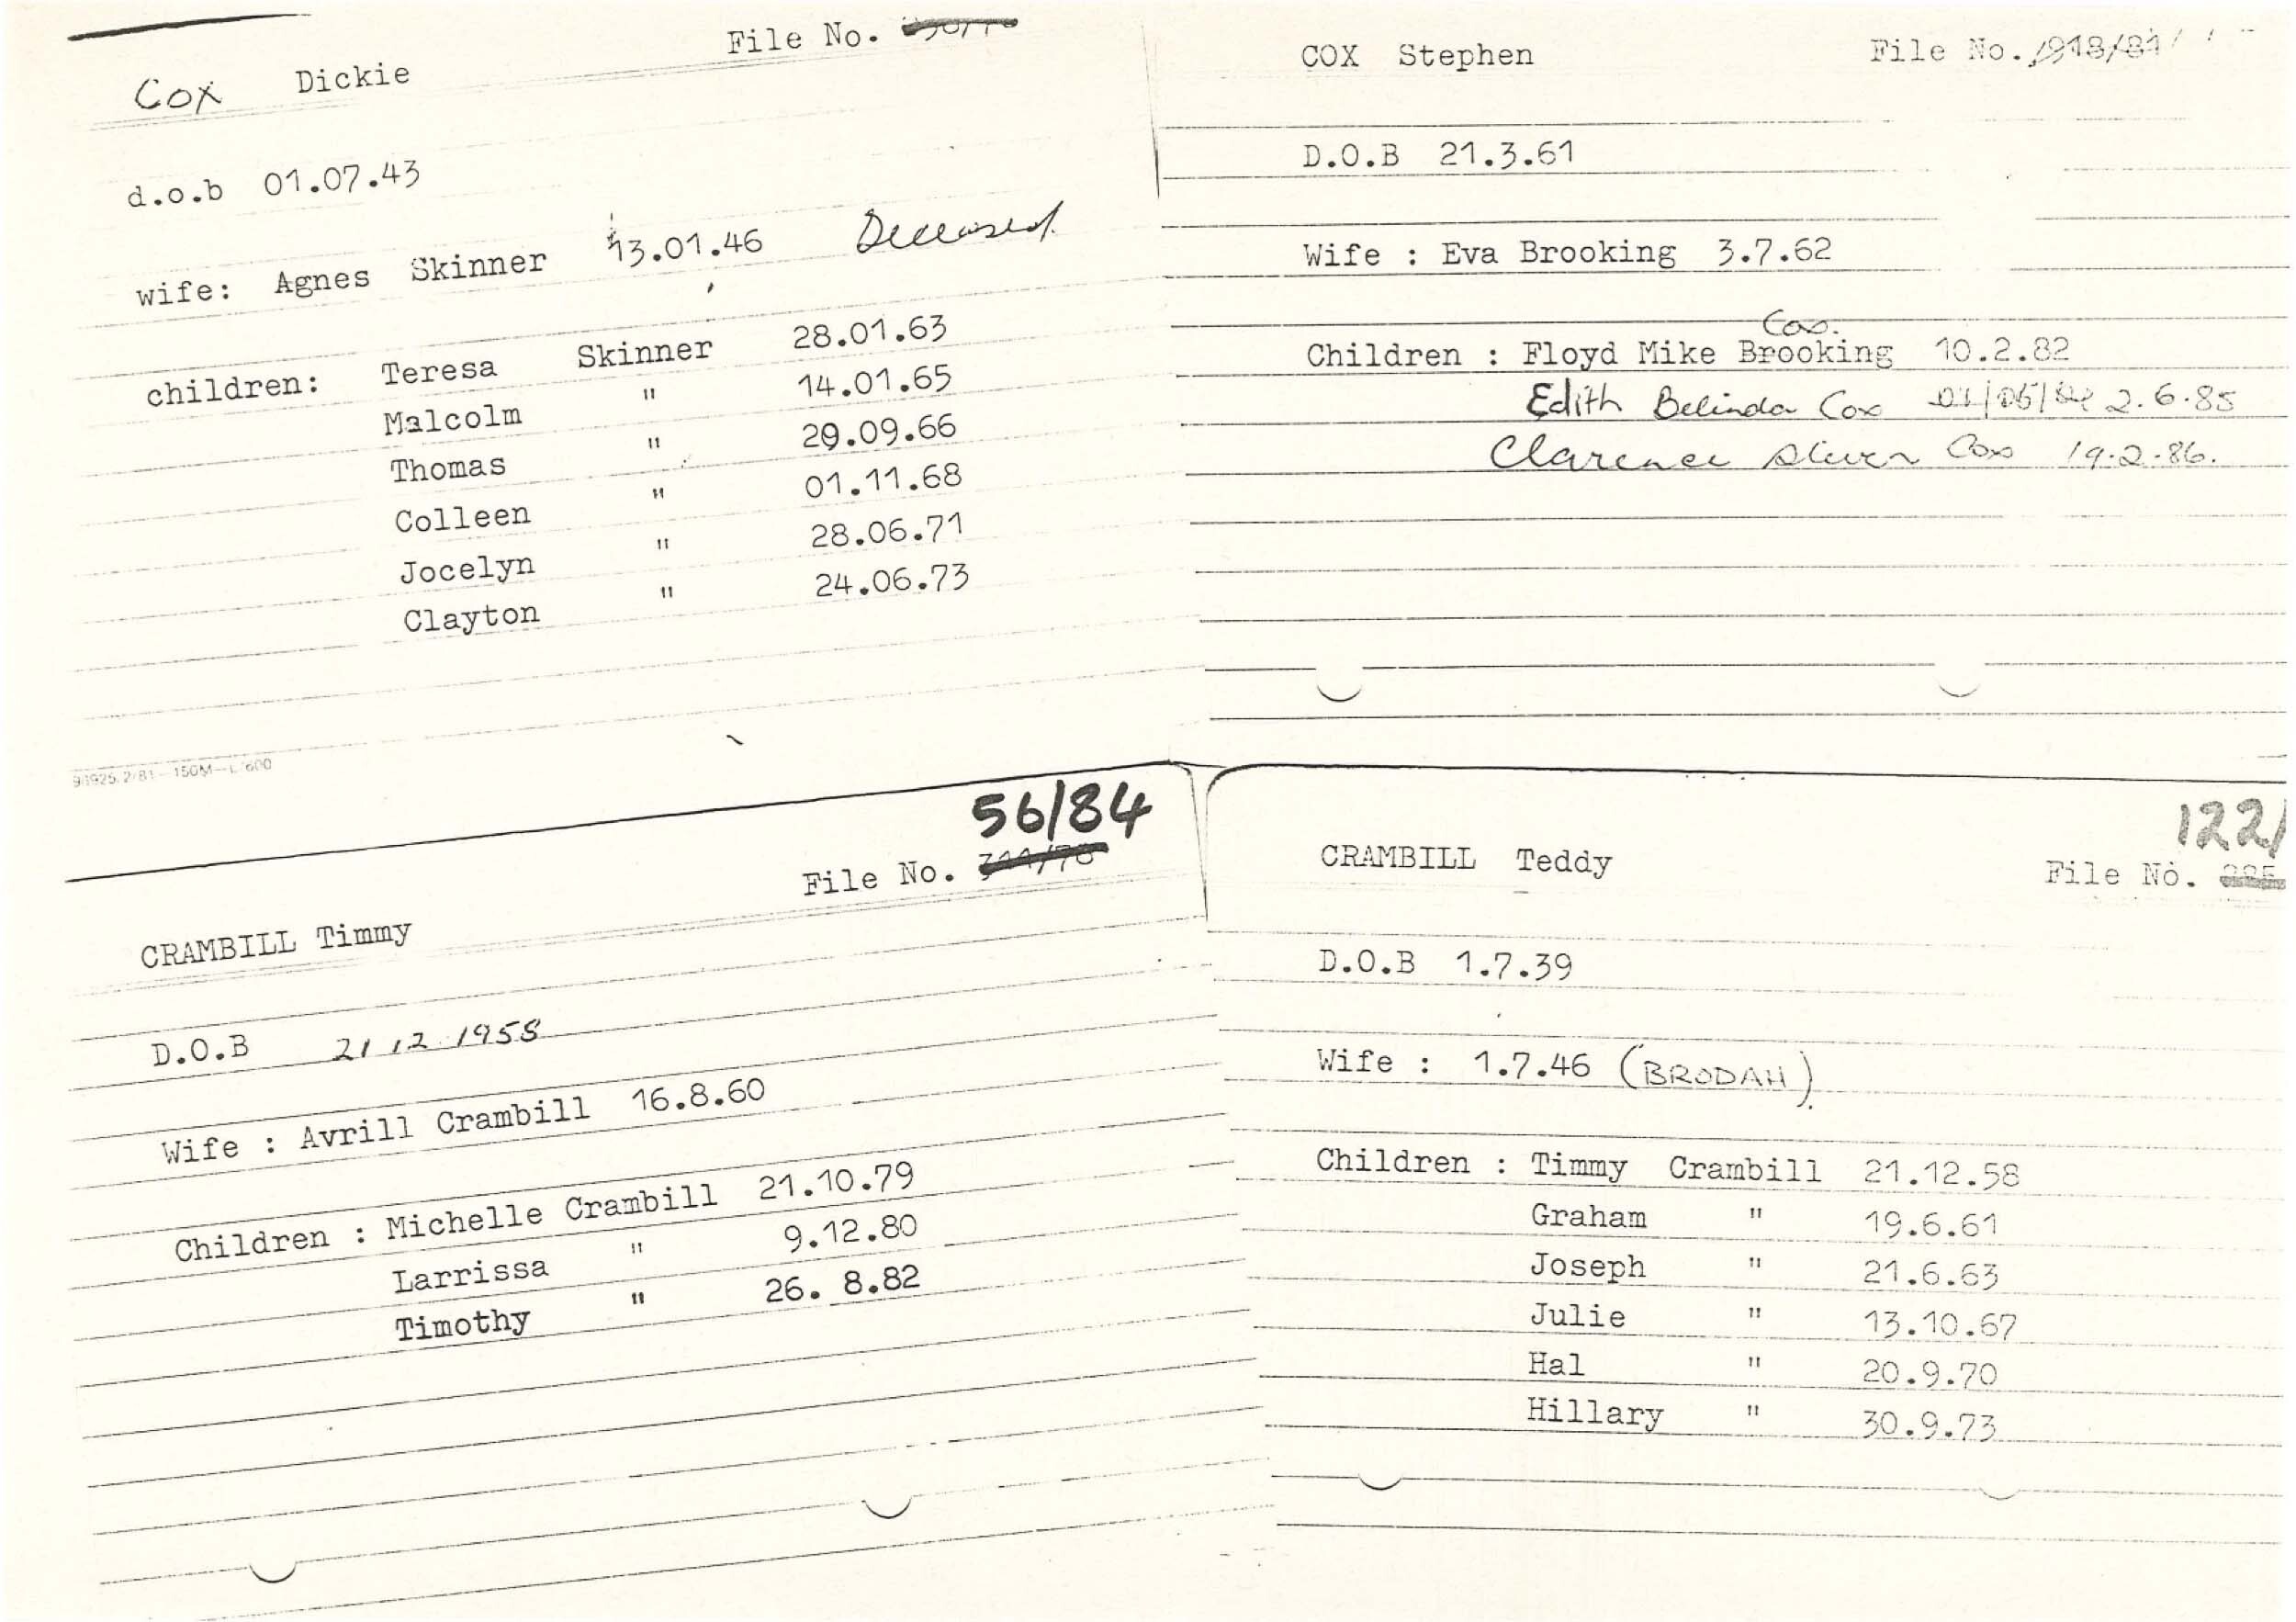 File No.
Cox Dickie
d.o.b 01.07.43
wife: Agnes Skinner 13.01.46 Deceased.
children: Teresa Skinner 28.01.63
Malcolm " 14.01.65
Thomas " 29.09.66
Colleen " 01.11.68
Jocelyn " 28.06.71
Clayton " 24.06.73
COX Stephen File No. 918/81
D.O.B 21.3.61
Wife : Eva Brooking 3.7.62
Cox.
Children : Floyd Mike Brooking 10.2.82
Edith Belinda Cox 2.6.85
Clarence Steven Cox 19.2.86.
56/84
File No.
CRAMBILL Timmy
D.O.B 21 12 1958
Wife : Avrill Crambill 16.8.60
Children : Michelle Crambill 21.10.79
Larrissa " 9.12.80
Timothy " 26. 8.82
122/
CRAMBILL Teddy File No.
D.O.B 1.7.39
Wife : 1.7.46 (BRODAH)
Children : Timmy Crambill 21.12.58
Graham " 19.6.61
Joseph " 21.6.63
Julie " 13.10.67
Hal " 20.9.70
Hillary " 30.9.73